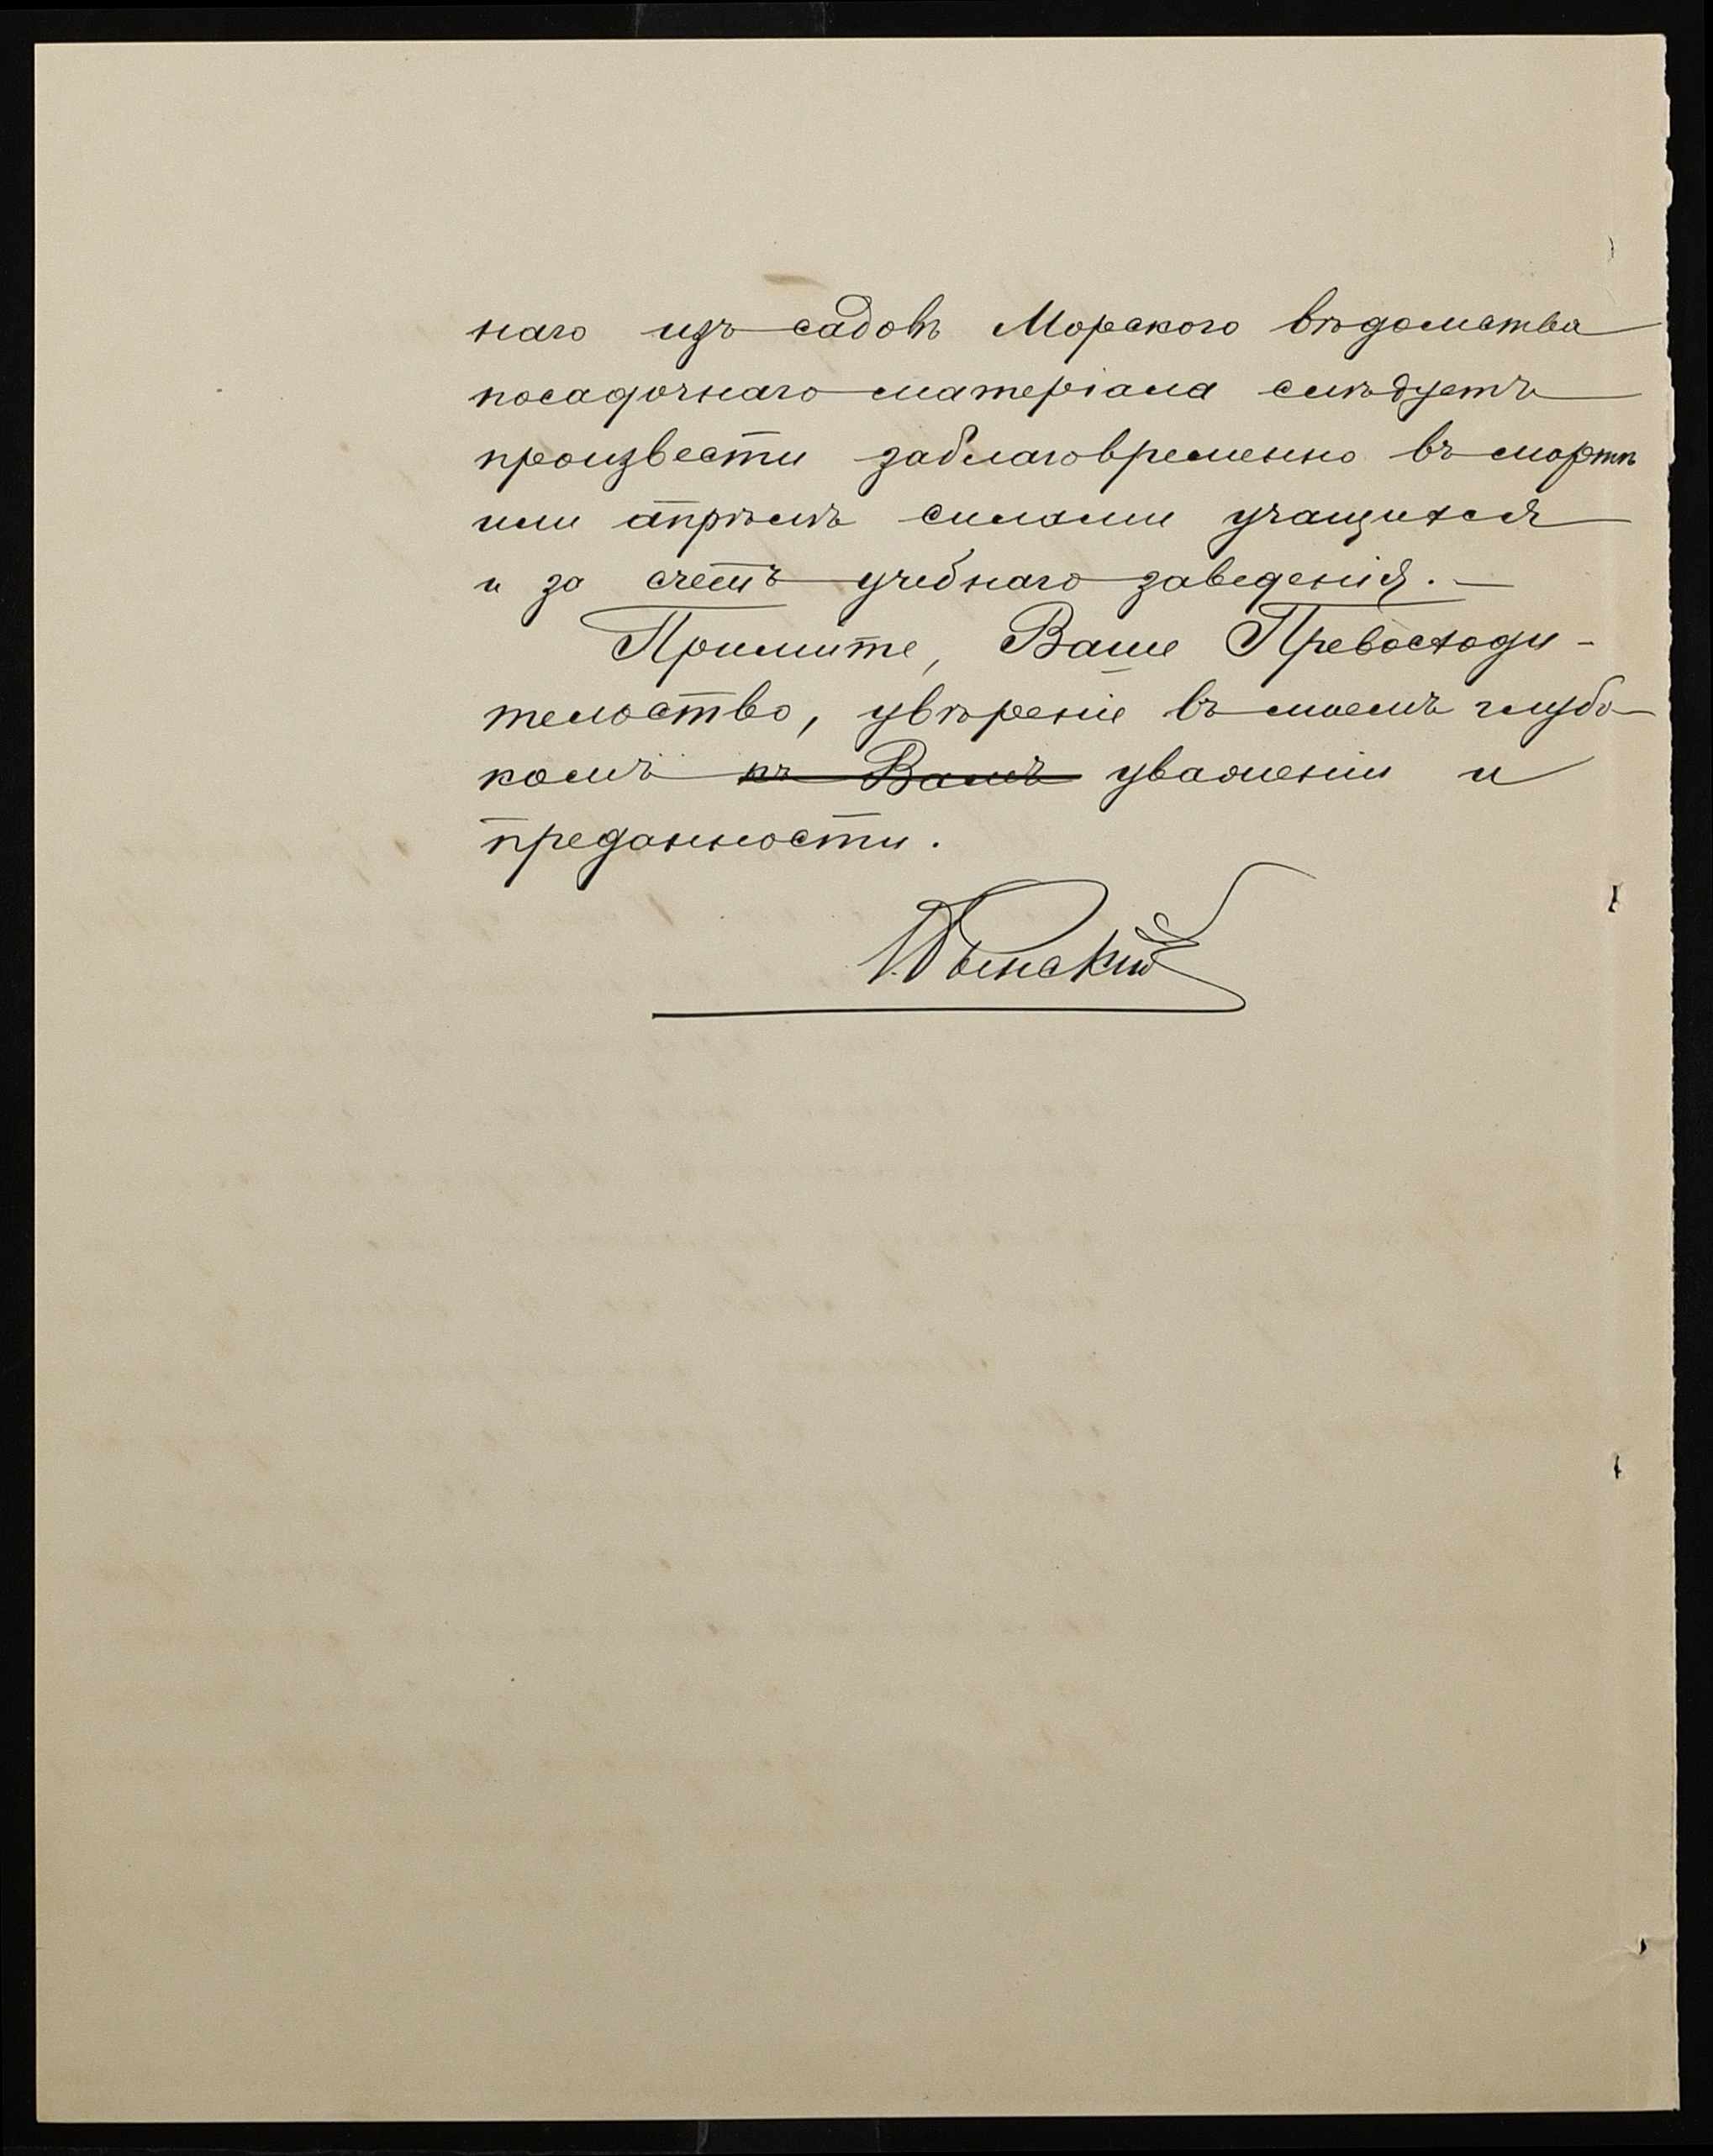 наго изъ садовъ Морского вѣдомства
посадочнаго матеріала слѣдуетъ
произвести заблаговременно въ мартѣ
или апрѣлѣ силами учащихся
и за счетъ учебнаго заведенія. —
Примите, Ваше Превосходи-
тельство, увѣреніе въ моемъ глубо-
комъ къ Вамъ уваженіи и
преданности.